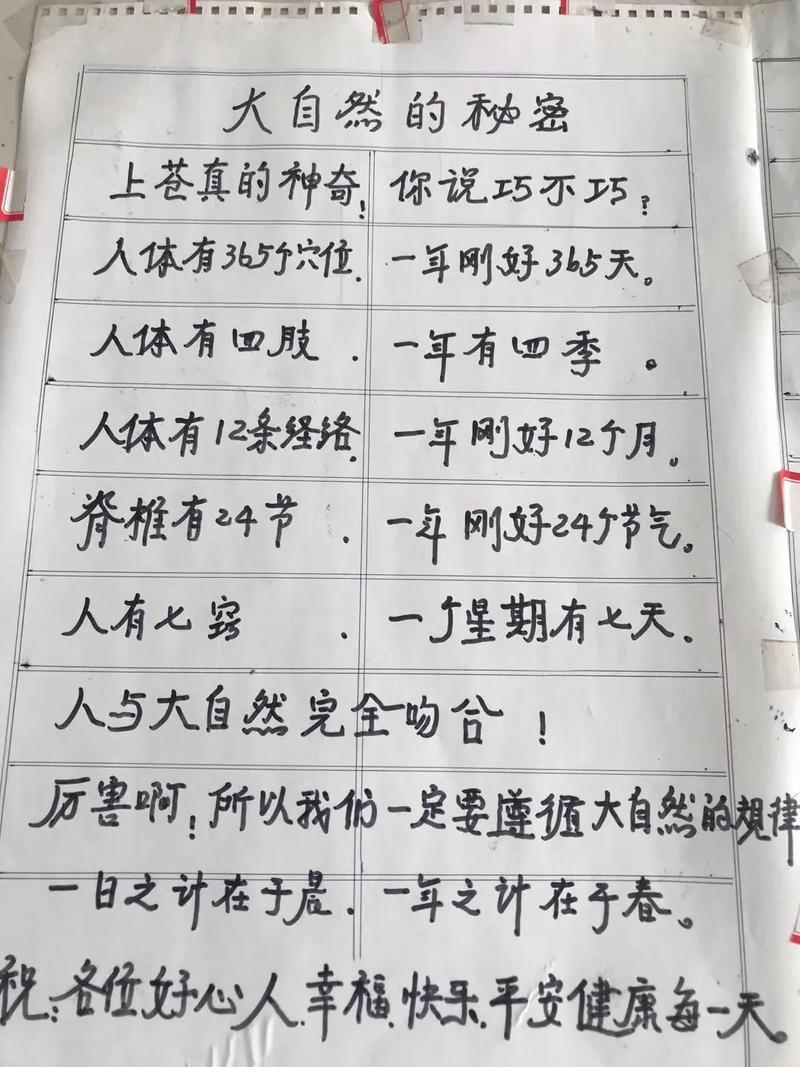 大自然的秘密
上苍真的神奇! 你说巧不巧?
人体有365个穴位. 一年刚好365天。
人体有四肢. 一年有四季。
人体有12条经络. 一年刚好12个月。
脊椎有24节. 一年刚好24个节气。
人有七窍. 一个星期有七天.
人与大自然完全吻合!
厉害啊!所以我们一定要遵循大自然的规律
一日之计在于晨. 一年之计在于春。
祝:各位好心人.幸福.快乐.平安健康每一天。